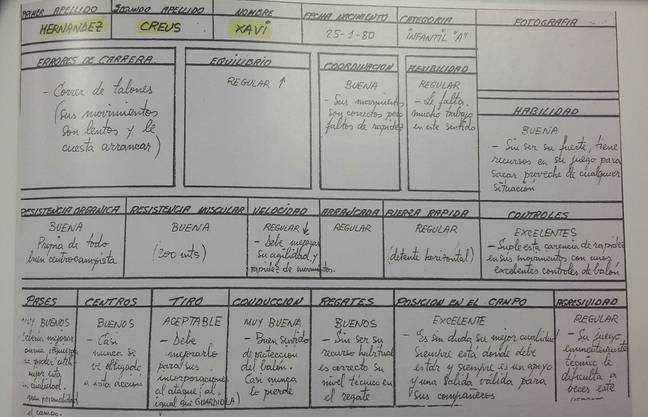 PRIMER APELLIDO
SEGUNDO APELLIDO
NOMBRE
FECHA NACIMIENTO
CATEGORIA
FOTOGRAFIA
HERNANDEZ
CREUS
XAVI
25-1-80
INFANTIL "A"
ERRORES DE CARRERA
- Correr de talones
(sus movimientos
son lentos y le
cuesta arrancar)
EQUILIBRIO
REGULAR ↑
COORDINACION
BUENA
- Sus movimientos
son correctos pero
faltos de rapidez
FLEXIBILIDAD
REGULAR
- Le falta
mucho trabajo
en este sentido
HABILIDAD
BUENA
- Sin ser su fuerte, tiene
recursos en su juego para
sacar provecho de cualquier
situación
RESISTENCIA ORGANICA
BUENA
Propia de todo
buen centrocampista
RESISTENCIA MUSCULAR
BUENA
(200 mts)
VELOCIDAD
REGULAR ↓
- Debe mejorar
su agilidad y
rapidez de movimientos.
ARRANCADA
REGULAR
FUERZA RAPIDA
REGULAR
(detente horizontal)
CONTROLES
EXCELENTES
- Suple esta carencia de rapidez
en sus movimientos con unos
excelentes controles de balón
PASES
MUY BUENOS
mejorar
su calidad.
CENTROS
BUENOS
- Casi
nunca se
ve obligado
a esta acción
TIRO
ACEPTABLE
- Debe
mejorarlo
para sus
incorporaciones
al ataque (al
igual que GUARDIOLA)
CONDUCCION
MUY BUENA
- Buen sentido
de protección
del balón.
Casi nunca
lo pierde
REGATES
BUENOS
- Sin ser su
recurso habitual
es correcto su
nivel técnico en
el regate
POSICION EN EL CAMPO
EXCELENTE
- Es sin duda su mejor cualidad
siempre está donde debe
estar y siempre es un apoyo
y una salida válida para
sus compañeros
AGRESIVIDAD
REGULAR
- Su juego
eminentemente
técnico le
dificulta a
veces este